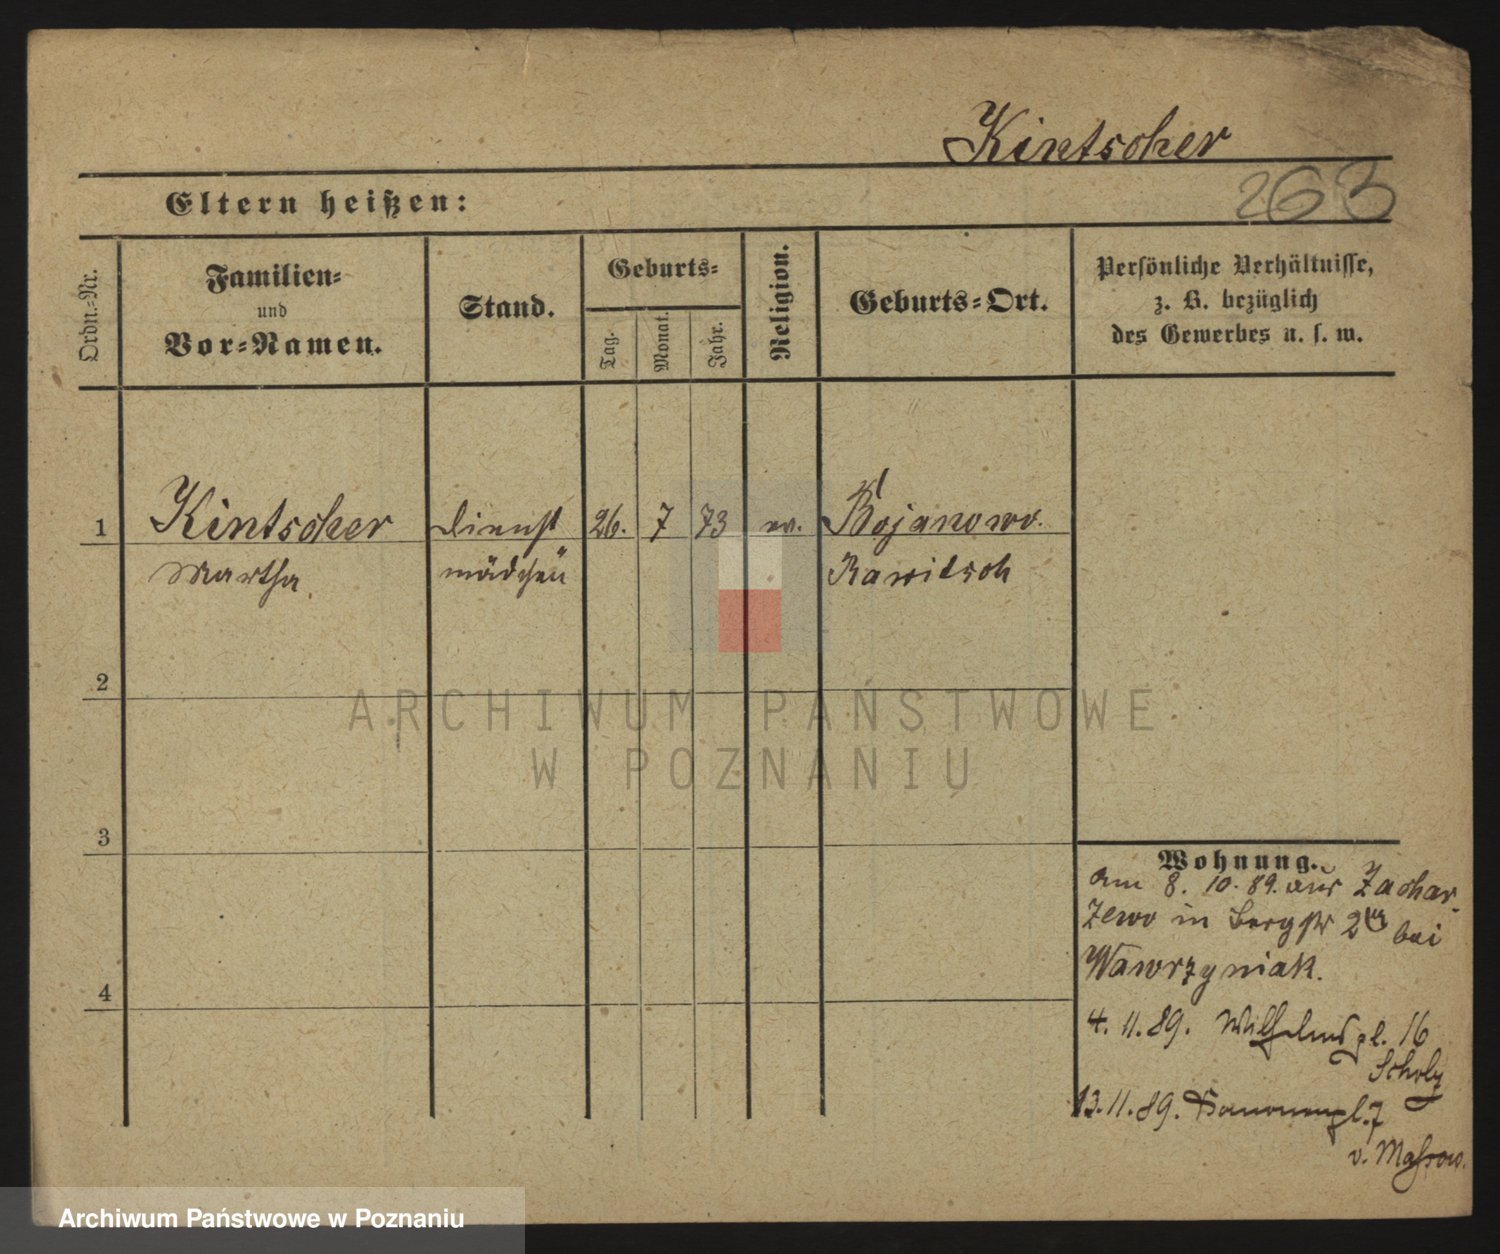 Kintscher
263
Eltern heißen:
Ordn.-Nr.
Familien-
und
Vor-Namen.
Stand.
Geburts-
Tag.
Monat.
Jahr.
Religion.
Geburts-Ort.
Persönliche Verhältnisse,
z. B. bezüglich
des Gewerbes u. s. w.
1
Kintscher
Dienst
26.
7
73
ev.
Bojanowo.
Martha
mädchen
Rawitsch
2
3
4
Wohnung.
am 8. 10. 89. aus Zachar-
zewo in Bergstr 2 bei
Wawrzyniak.
4. 11. 89. Wilhelmspl. 16
Scholz
13. 11. 89. Kanonenpl. 7
v. Massow.
ARCHIWUM PAŃSTWOWE
W POZNANIU
Archiwum Państwowe w Poznaniu